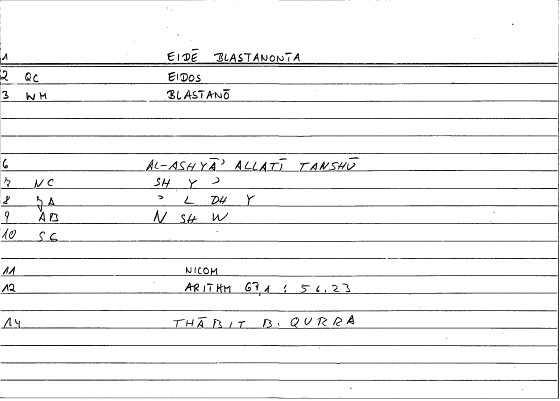 1 EIDĒ BLASTANONTA
2 QC EIDOS
3 WH BLASTANŌ
6 AL-ASHYĀʾ ALLATĪ TANSHŪ
7 NC SH Y ʾ
8 ʾ L DH Y
9 AB N SH W
10 SG
11 NICOM
12 ARITHM 67,1 : 56,23
14 THĀBIT B. QURRA